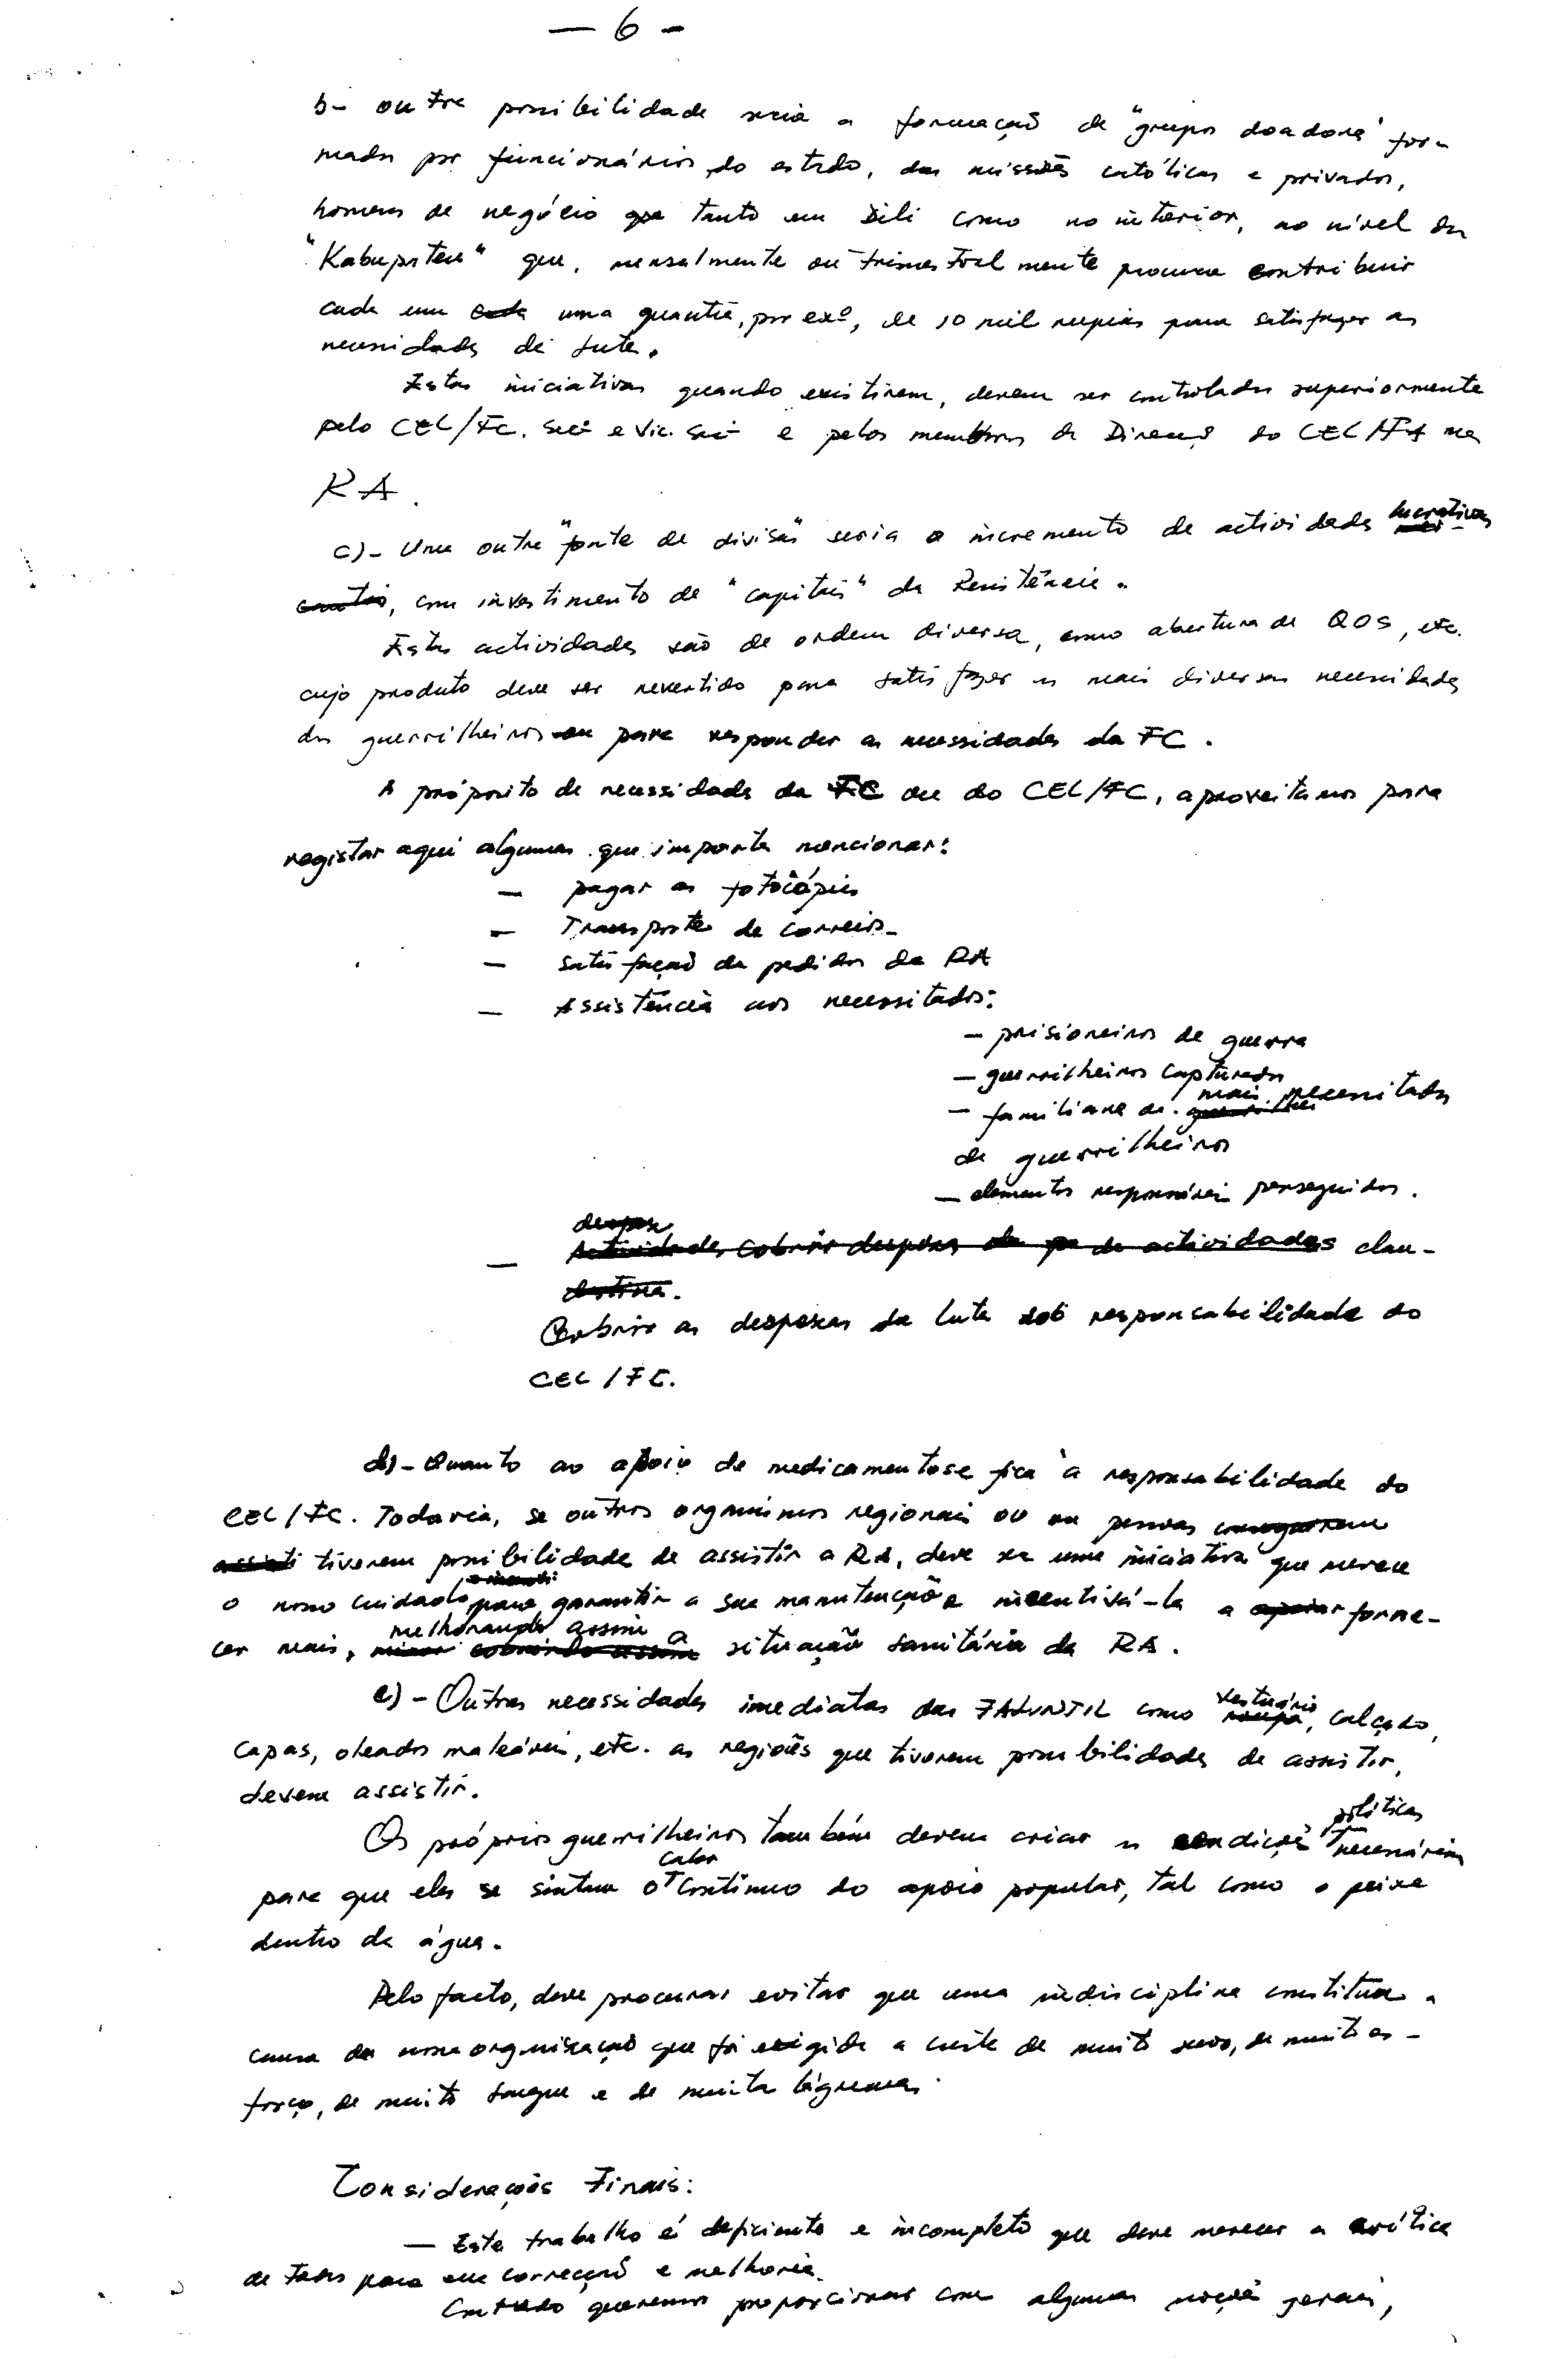 — 6 -
b- outra possibilidade seria a formação de "grupos doadores" for-
mados por funcionários do estado, das missões católicas e privados,
homens de negócio que tanto em Dili como no interior, no nível do
"Kabupaten" que, mensalmente ou trimestralmente procurem contribuir
cada um cada uma quantia, por exº, de 10 mil rupias para satisfazer as
necessidades de luta.
Estas iniciativas quando existirem, devem ser controladas superiormente
pelo CEL/FC. Secº e Vic. Secº e pelos membros da Direcção do CEL/FA na
RA.
c)- Uma outra "fonte de divisas" seria o incremento de actividades lucrativas
, com investimento de "capitais" da Resistência.
Estas actividades são de ordem diversa, como abertura de QOS, etc.
cujo produto deve ser revertido para satisfazer as mais diversas necessidades
dos guerrilheiros ou para responder as necessidades da FC.
A propósito de necessidades da FC ou do CEL/FC, aproveitamos para
registar aqui algumas que importa mencionar:
— pagar as fotocópias
— Transportes de correios-
— satisfação de pedidos da RA
— Assistência aos necessitados:
— prisioneiros de guerra
— guerrilheiros capturados
— familiares de mais necessitados
de guerrilheiros
— elementos responsáveis perseguidos.
despesa
— Actividades cobrir despesas da de actividades clan-
destina.
Cobrir as despesas da luta sob responsabilidade do
CEL/FC.
d)- Quanto ao apoio de medicamentos fica à responsabilidade do
CEL/FC. Todavia, se outros organismos regionais ou pessoas conseguirem
assisti tiverem possibilidade de assistir a RA, deve ser uma iniciativa que merece
o nosso cuidado para garantir a sua manutenção e incentivá-la a apoiar forne-
cer mais, melhorando assim a situação sanitária da RA.
e)- Outras necessidades imediatas das FALINTIL como vestuário roupa, calçado,
capas, oleados maleáveis, etc. as regiões que tiverem possibilidades de assistir,
devem assistir.
Os próprios guerrilheiros também devem criar as condições políticas necessárias
para que eles se sintam o calor contínuo do apoio popular, tal como o peixe
dentro da água.
Pelo facto, deve procurar evitar que uma indisciplina constitua a
causa da nossa organização que foi erigida a custa de muito suor, de muito es-
forço, de muito sangue e de muita lágrimas.
Considerações Finais:
— Este trabalho é deficiente e incompleto que deve merecer a crítica
de todos para sua correcção e melhoria.
Contudo queremos proporcionar com algumas noções gerais,